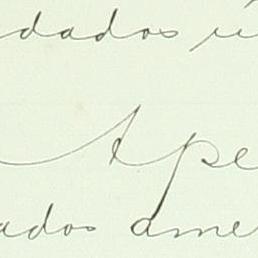 dados ú
Ape
ados ame